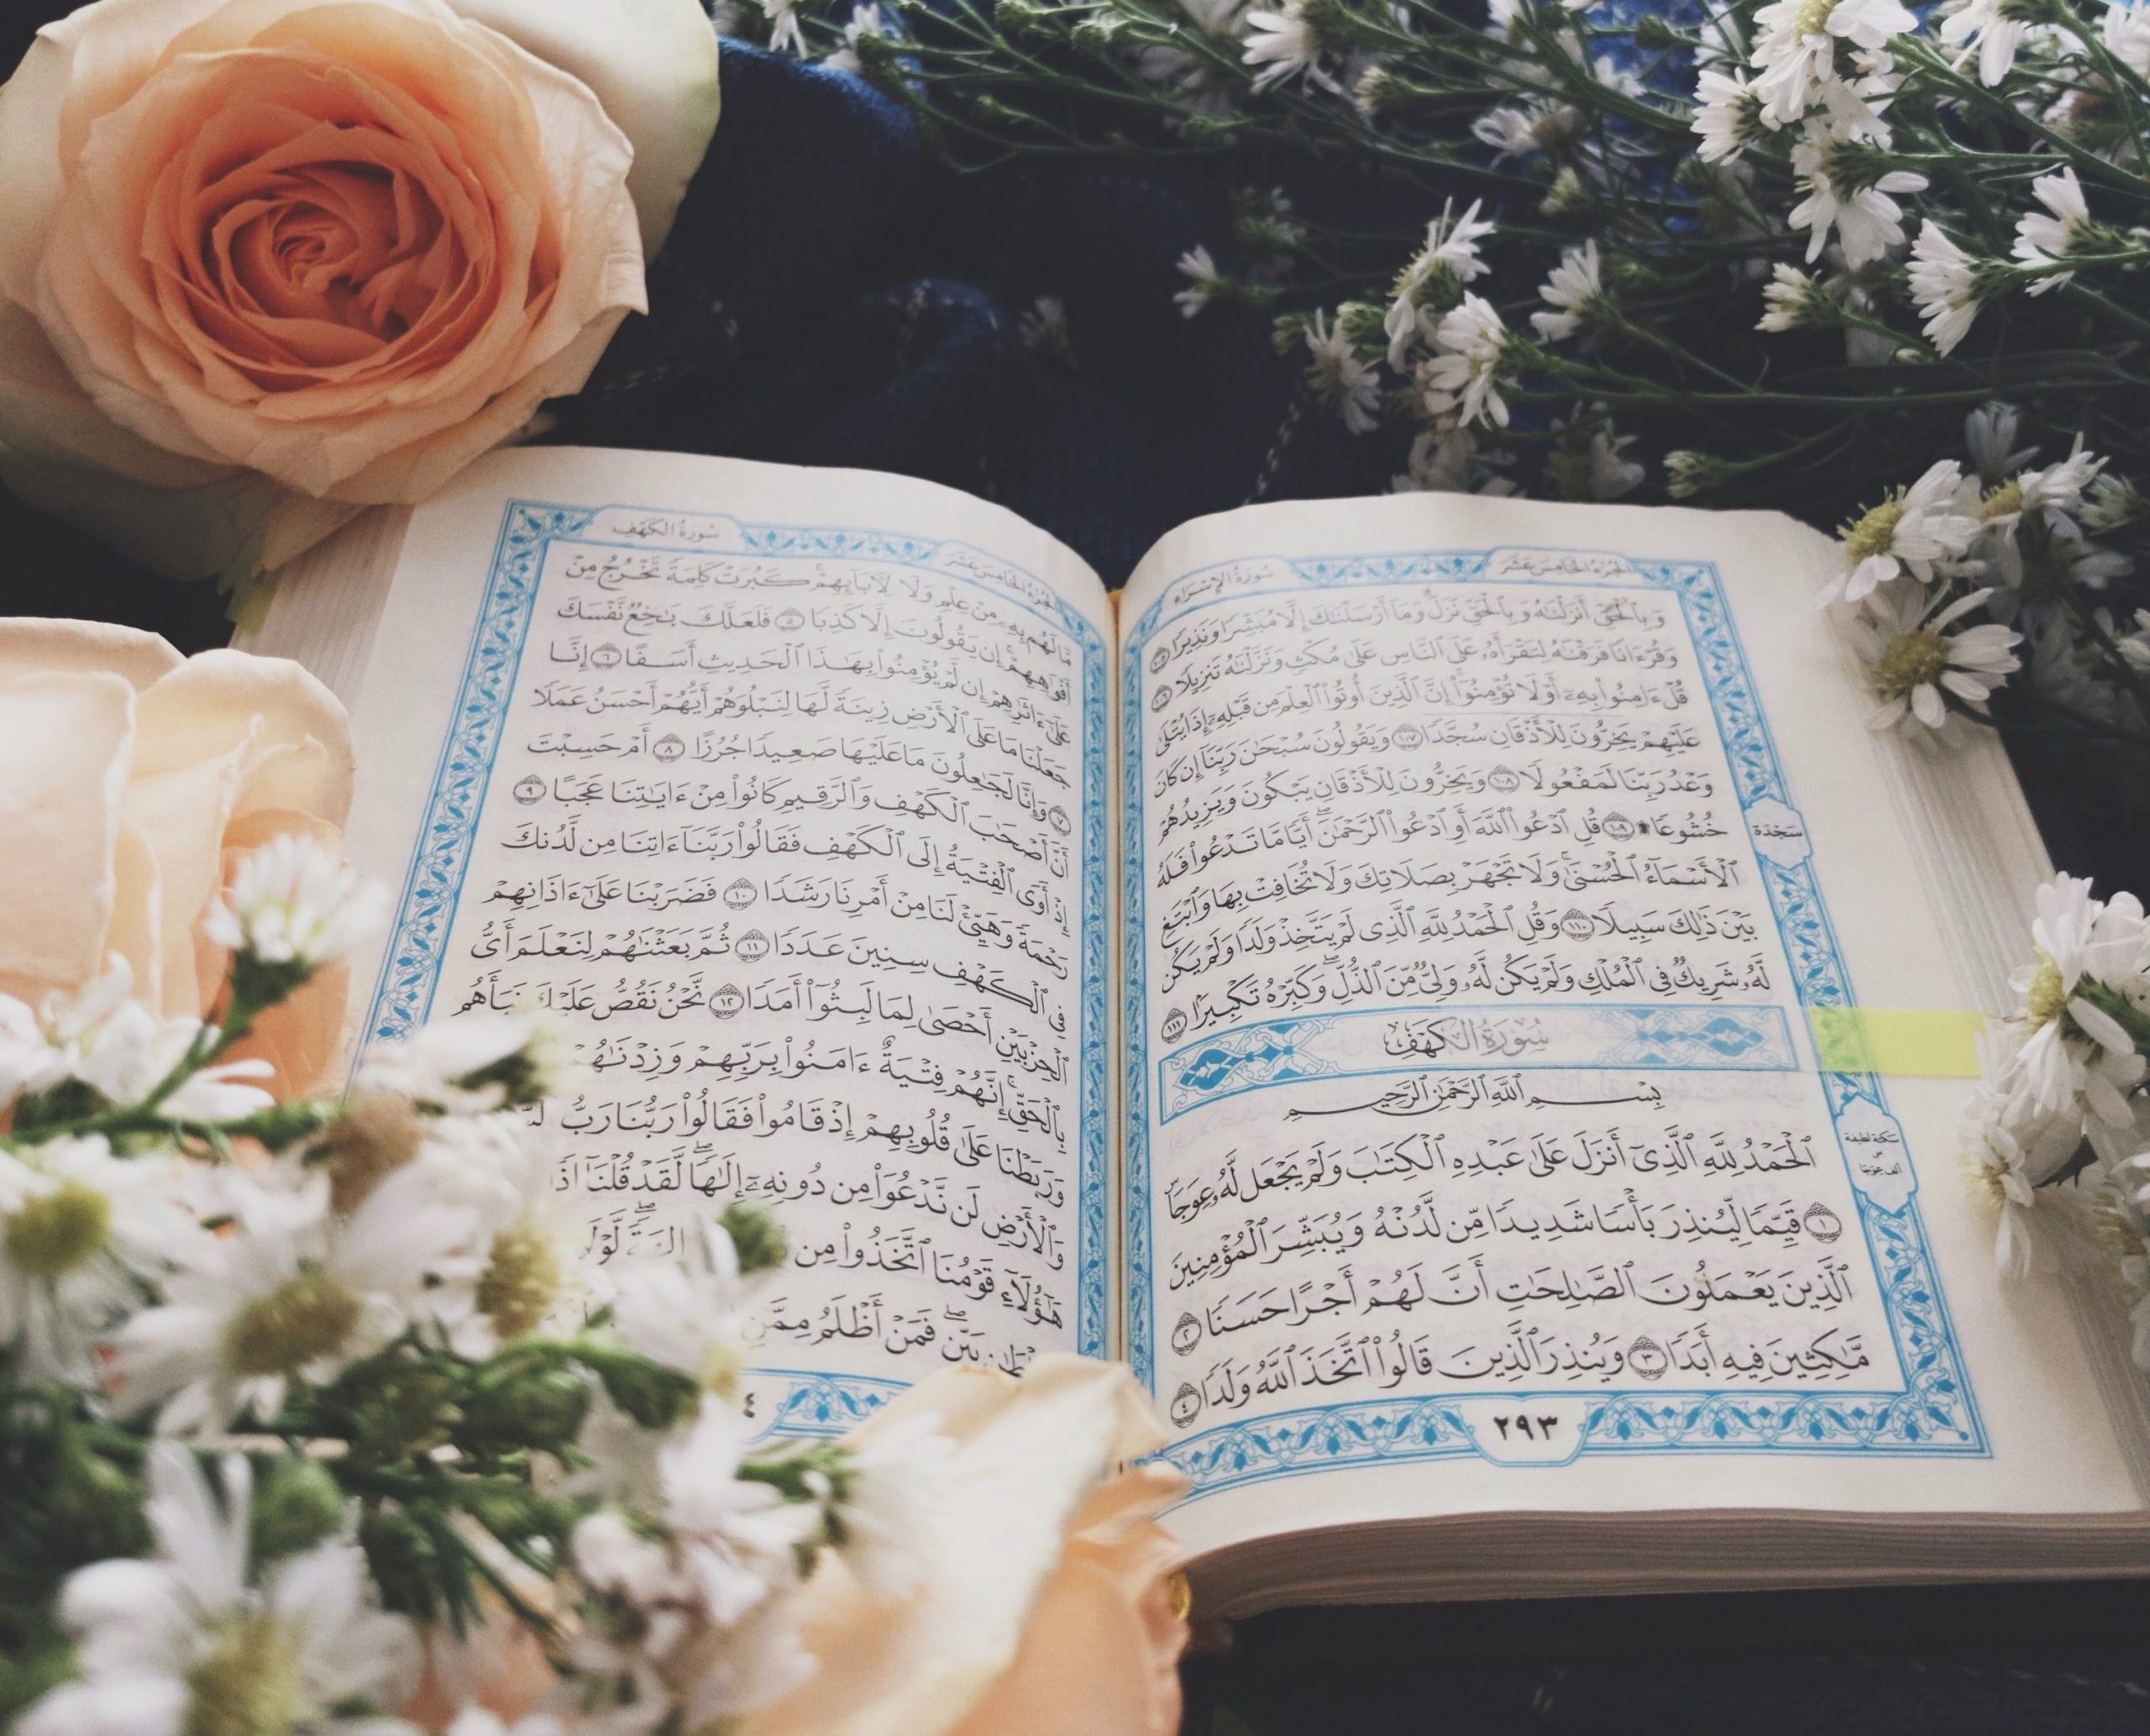 سُورَةُ الإِسۡرَاءِ
الجُزۡءُ الخَامِسَ عَشَرَ
وَبِٱلۡحَقِّ أَنزَلۡنَٰهُ وَبِٱلۡحَقِّ نَزَلَۗ وَمَآ أَرۡسَلۡنَٰكَ إِلَّا مُبَشِّرٗا وَنَذِيرٗا ١٠٥
وَقُرۡءَانٗا فَرَقۡنَٰهُ لِتَقۡرَأَهُۥ عَلَى ٱلنَّاسِ عَلَىٰ مُكۡثٖ وَنَزَّلۡنَٰهُ تَنزِيلٗا ١٠٦
قُلۡ ءَامِنُواْ بِهِۦٓ أَوۡ لَا تُؤۡمِنُوٓاْۚ إِنَّ ٱلَّذِينَ أُوتُواْ ٱلۡعِلۡمَ مِن قَبۡلِهِۦٓ إِذَا يُتۡلَىٰ
عَلَيۡهِمۡ يَخِرُّونَۤ لِلۡأَذۡقَانِۤ سُجَّدٗاۤ ١٠٧ وَيَقُولُونَ سُبۡحَٰنَ رَبِّنَآ إِن كَانَ
وَعۡدُ رَبِّنَا لَمَفۡعُولٗا ١٠٨ وَيَخِرُّونَ لِلۡأَذۡقَانِ يَبۡكُونَ وَيَزِيدُهُمۡ
خُشُوعٗا۩ ١٠٩ قُلِ ٱدۡعُواْ ٱللَّهَ أَوِ ٱدۡعُواْ ٱلرَّحۡمَٰنَۖ أَيّٗا مَّا تَدۡعُواْ فَلَهُ
ٱلۡأَسۡمَآءُ ٱلۡحُسۡنَىٰۚ وَلَا تَجۡهَرۡ بِصَلَاتِكَ وَلَا تُخَافِتۡ بِهَا وَٱبۡتَغِ
بَيۡنَ ذَٰلِكَ سَبِيلٗا ١١٠ وَقُلِ ٱلۡحَمۡدُ لِلَّهِ ٱلَّذِي لَمۡ يَتَّخِذۡ وَلَدٗا وَلَمۡ يَكُن
لَّهُۥ شَرِيكٞ فِي ٱلۡمُلۡكِ وَلَمۡ يَكُن لَّهُۥ وَلِيّٞ مِّنَ ٱلذُّلِّۖ وَكَبِّرۡهُ تَكۡبِيرَۢا ١١١
سُورَةُ الكَهۡفِ
بِسۡمِ ٱللَّهِ ٱلرَّحۡمَٰنِ ٱلرَّحِيمِ
ٱلۡحَمۡدُ لِلَّهِ ٱلَّذِيٓ أَنزَلَ عَلَىٰ عَبۡدِهِ ٱلۡكِتَٰبَ وَلَمۡ يَجۡعَل لَّهُۥ عِوَجَاۜ
١ قَيِّمٗا لِّيُنذِرَ بَأۡسٗا شَدِيدٗا مِّن لَّدُنۡهُ وَيُبَشِّرَ ٱلۡمُؤۡمِنِينَ
ٱلَّذِينَ يَعۡمَلُونَ ٱلصَّٰلِحَٰتِ أَنَّ لَهُمۡ أَجۡرًا حَسَنٗا ٢
مَّٰكِثِينَ فِيهِ أَبَدٗا ٣ وَيُنذِرَ ٱلَّذِينَ قَالُواْ ٱتَّخَذَ ٱللَّهُ وَلَدٗا ٤
٢٩٣
سَجۡدَة
سكتة لطيفة
س
ألف عوجا
سُورَةُ الكَهۡفِ
الجُزۡءُ الخَامِسَ عَشَرَ
مَّا لَهُم بِهِۦ مِنۡ عِلۡمٖ وَلَا لِأٓبَآئِهِمۡۚ كَبُرَتۡ كَلِمَةٗ تَخۡرُجُ مِنۡ
أَفۡوَٰهِهِمۡۚ إِن يَقُولُونَ إِلَّا كَذِبٗا ٥ فَلَعَلَّكَ بَٰخِعٞ نَّفۡسَكَ
عَلَىٰٓ ءَاثَٰرِهِمۡ إِن لَّمۡ يُؤۡمِنُواْ بِهَٰذَا ٱلۡحَدِيثِ أَسَفًا ٦ إِنَّا
جَعَلۡنَا مَا عَلَى ٱلۡأَرۡضِ زِينَةٗ لَّهَا لِنَبۡلُوَهُمۡ أَيُّهُمۡ أَحۡسَنُ عَمَلٗا
٧ وَإِنَّا لَجَٰعِلُونَ مَا عَلَيۡهَا صَعِيدٗا جُرُزًا ٨ أَمۡ حَسِبۡتَ
أَنَّ أَصۡحَٰبَ ٱلۡكَهۡفِ وَٱلرَّقِيمِ كَانُواْ مِنۡ ءَايَٰتِنَا عَجَبًا ٩
إِذۡ أَوَى ٱلۡفِتۡيَةُ إِلَى ٱلۡكَهۡفِ فَقَالُواْ رَبَّنَآ ءَاتِنَا مِن لَّدُنكَ
رَحۡمَةٗ وَهَيِّئۡ لَنَا مِنۡ أَمۡرِنَا رَشَدٗا ١٠ فَضَرَبۡنَا عَلَىٰٓ ءَاذَانِهِمۡ
فِي ٱلۡكَهۡفِ سِنِينَ عَدَدٗا ١١ ثُمَّ بَعَثۡنَٰهُمۡ لِنَعۡلَمَ أَيُّ
ٱلۡحِزۡبَيۡنِ أَحۡصَىٰ لِمَا لَبِثُوٓاْ أَمَدٗا ١٢ نَّحۡنُ نَقُصُّ عَلَيۡكَ نَبَأَهُم
بِٱلۡحَقِّۚ إِنَّهُمۡ فِتۡيَةٌ ءَامَنُواْ بِرَبِّهِمۡ وَزِدۡنَٰهُمۡ
وَرَبَطۡنَا عَلَىٰ قُلُوبِهِمۡ إِذۡ قَامُواْ فَقَالُواْ رَبُّنَا رَبُّ
وَٱلۡأَرۡضِ لَن نَّدۡعُوَاْ مِن دُونِهِۦٓ إِلَٰهٗاۖ لَّقَدۡ قُلۡنَآ
هَٰٓؤُلَآءِ قَوۡمُنَا ٱتَّخَذُواْ مِن
بَيِّنٖۖ فَمَنۡ أَظۡلَمُ مِمَّنِ